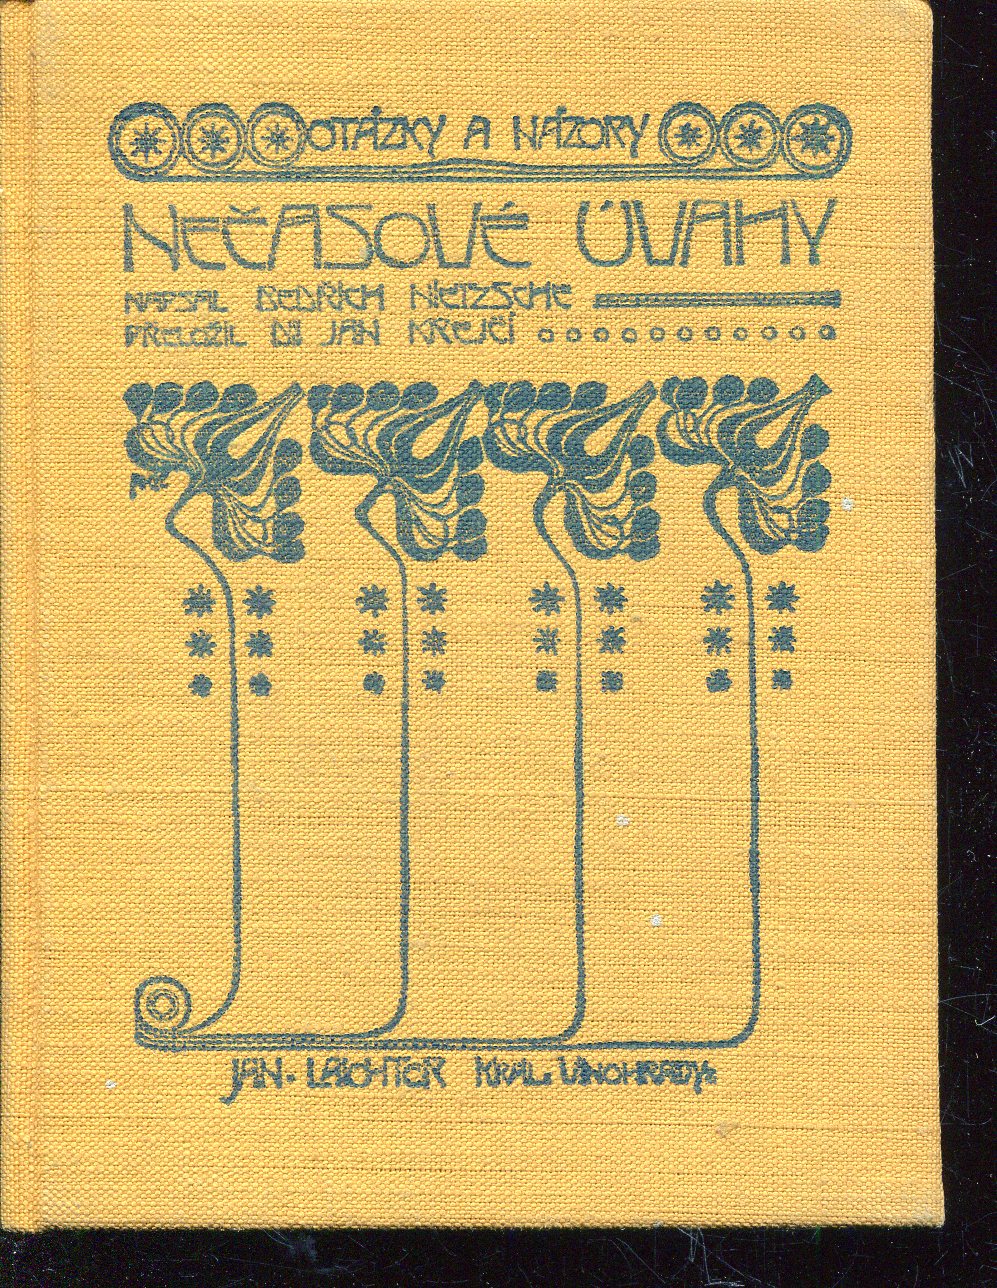 OTÁZKY A NÁZORY
NEČASOVÉ ÚVAHY
NAPSAL BEDŘICH NIETZSCHE
PŘELOŽIL DR JAN KREJČÍ
JAN LAICHTER KRÁL. VINOHRADY